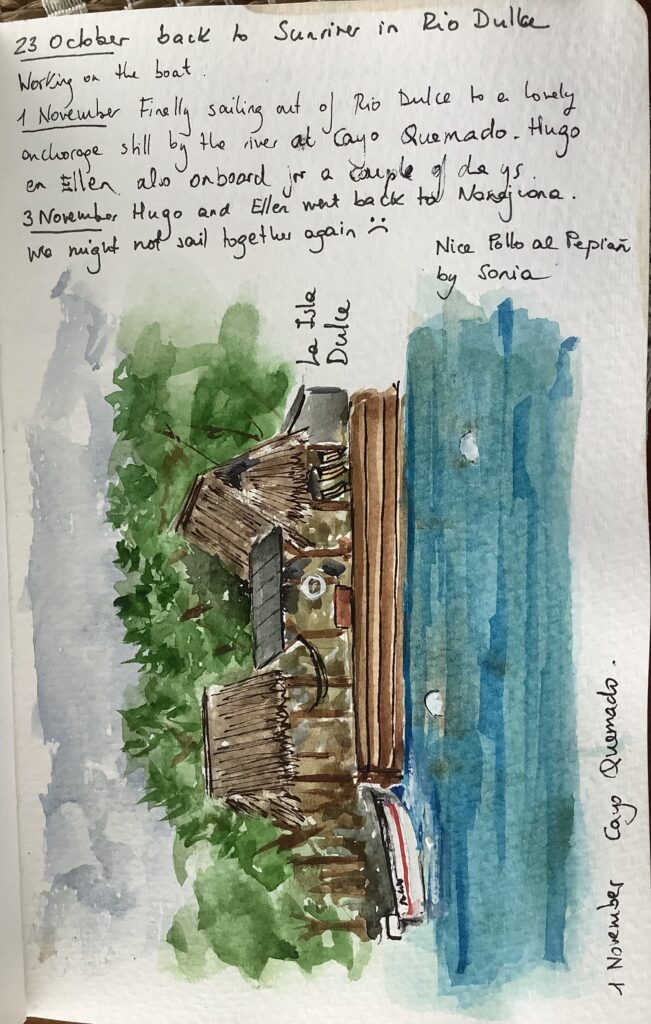 23 October back to Sunriver in Rio Dulce
Working on the boat.
1 November Finally sailing out of Rio Dulce to a lovely
anchorage still by the river at Cayo Quemado. Hugo
en Ellen also onboard for a couple of days.
3 November Hugo and Ellen went back to
We might not sail together again :(
Nice Pollo al Pepián
by Sonia
La Isla
Dulce
1 November Cayo Quemado.